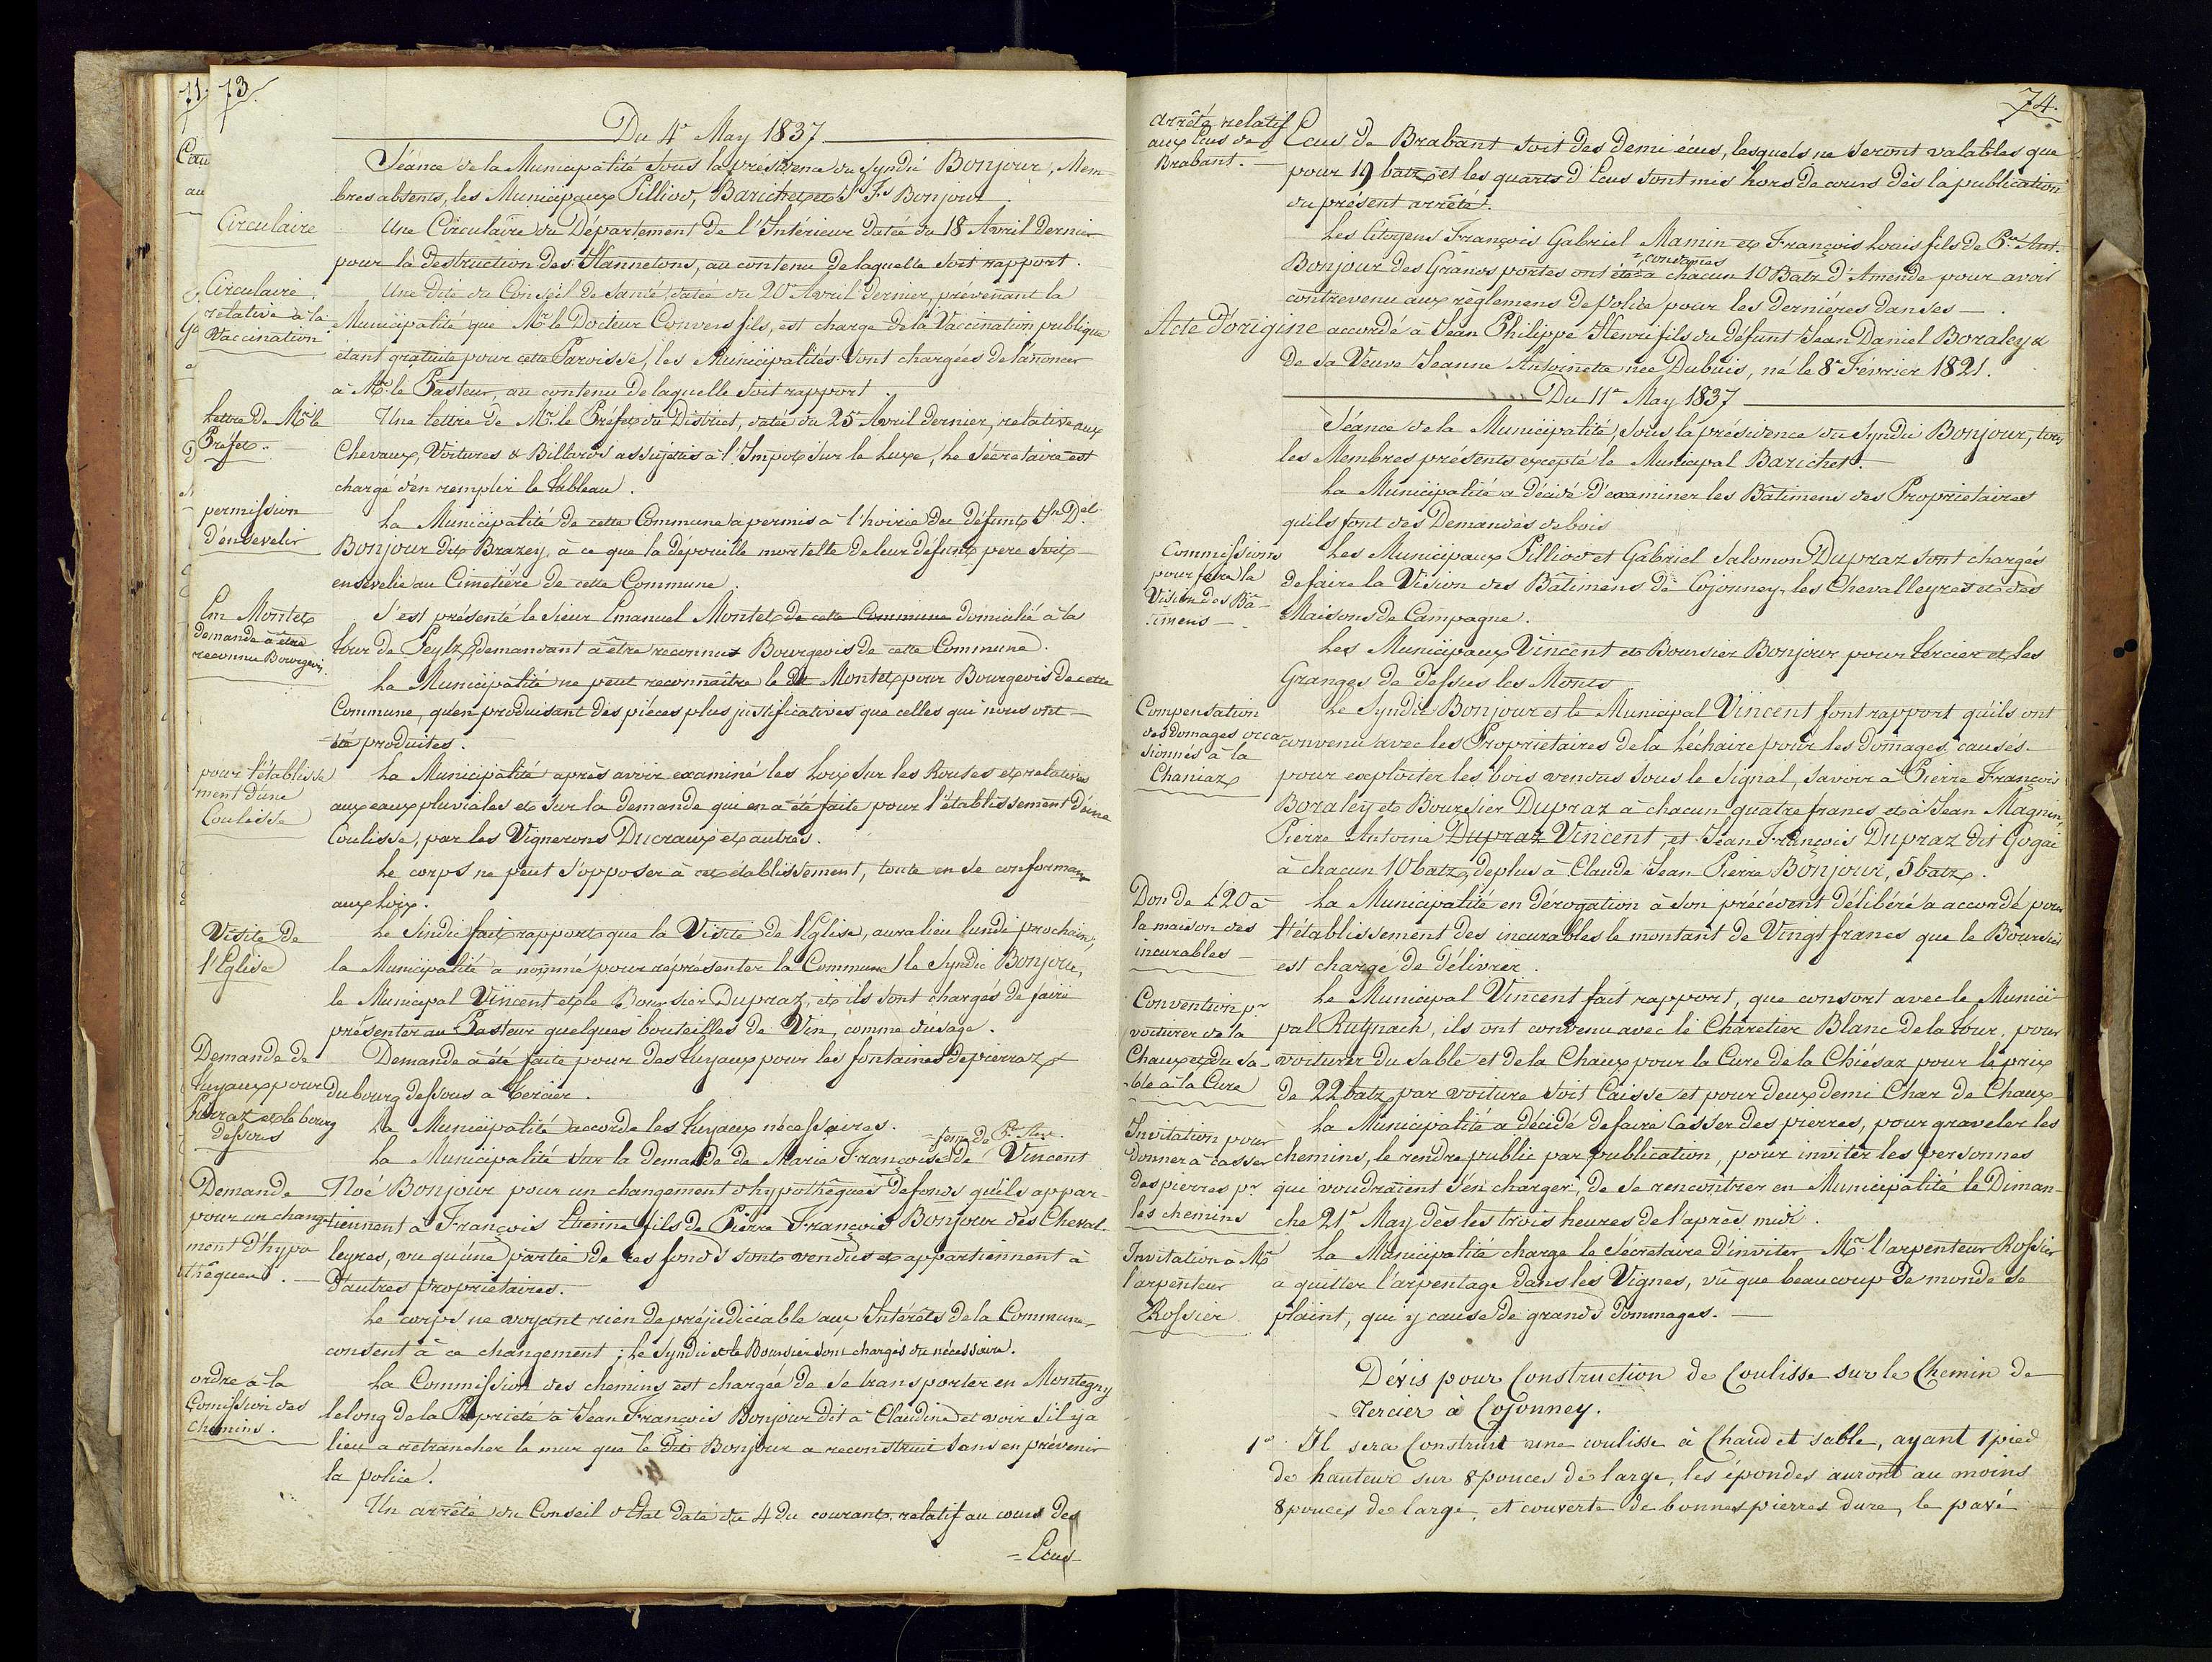 73.
Du 4e May 1837
Séance de la Municipalité sous la présidence du Syndic Bonjour, Mem-
bres absents, les Municipaux Pilliod, Barichet et Bonjour
Circulaire
Une Circulaire du Département de l'Intérieur datée du 18 Avril dernier
pour la destruction des Hannetons, au contenu de laquelle soit rapport.
Circulaire
relative à la
Vaccination
Une dite du Conseil de Santé, datée du 20e Avril dernier, prévenant la
Municipalité que Mr le Docteur Convers fils, est chargé de la Vaccination publique
étant gratuite pour cette Paroisse, les Municipalités sont chargées de l'anoncer
à Mr le Pasteur, au contenu de laquelle soit rapport
Lettre de Mr le
Préfet.
Une lettre de Mr le Préfet du District, datée du 25e Avril dernier, relative aux
Chevaux, Voitures & Billards assujetis à l'Impot sur le Luxe, Le Sécretaire est
chargé d'en remplir le Tableau.
permission
d'ensevelir
La Municipalité de cette Commune a permis à l'hoirie du défunt Jn Del
Bonjour dit Brazey, à ce que la dépouille mortelle de leur défunt pere soit
ensevelie au Cimetière de cette Commune.
Em Montet
demande à être
reconnu Bourgeois.
S'est présenté le Sieur Emanuel Montet de cette Commune domicilié à la
Tour de Peylz, demandant à être reconnus Bourgeois de cette Commune.
La Municipalité ne peut reconnaître le dit Montet pour Bourgeois de cette
Commune, qu'en produisant des pièces plus justificatives que celles qui nous ont
été produites.
pour l'établisse
ment d'une
Coulisse
La Municipalité après avoir examiné les Loix sur les Routes et relatives
aux eaux pluviales et sur la demande qui en a été faite pour l'établissement d'une
Coulisse, par les Vignerons Ducraux et autres.
Le corps ne peut s'opposer à cet établissement, toute en se conformant
aux Loix.
Visite de
l'Eglise
Le Sindic fait rapport que la Visite de l'Eglise, aura lieu lundi prochain,
la Municipalité a nommé pour réprésenter la Commune le Syndic Bonjour,
le Municipal Vincent et le Boursier Dupraz, et ils sont chargés de faire
présenter au Pasteur quelques bouteilles de Vin, comme d'usage.
Demande de
Tuyaux pour
Pierraz et le bourg
dessous
Demande a été faite pour des Tuyaux pour les fontaines de pierraz &
du bourg dessous a Tercier.
La Municipalité accorde les Tuyaux nécessaires.
Demande
pour un change
ment d'hypo
thêques.
La Municipalité sur la demande de Marie Françoise de Vincent
Noé Bonjour pour un changement d'hypothêques de fonds qu'ils appar-
tiennent à François Etienne fils de Pierre François Bonjour des Cheval-
leyres, vu qu'une partie de ces fonds sont vendus et appartiennent à
d'autres Propriétaires.
Le corps ne voyant rien de préjudiciable aux Intérêts de la Commune,
consent à ce changement; Le Syndic et le Boursier sont chargés du nécessaire.
ordre à la
Comission des
chemins.
La Commission des chemins est chargée de se transporter en Montegny
le long de la Proprieté à Jean François Bonjour dit à Claudine et voir s'il y a
lieu a retrancher le mur que le dit Bonjour a reconstruit sans en prévenir
la police.
Un arrêté du Conseil d'Etat daté du 4 du courant, relatif au cours des
= Ecus
74.
Arrêté relatif
aux Ecus de
Brabant.
Ecus de Brabant soit des demi écus, lesquels ne seront valables que
pour 19 batz et les quarts d'Ecus sont mis hors de cours dès la publication
du présent arrêté.
Les Citoyens François Gabriel Mamin et François Louis fils de Pre Ant.
Bonjour des Granos portes ont été condamnés à chacun 10 Batz d'Amende pour avoir
contrevenu aux règlemens de police pour les dernières danses
Acte d'origine accordé à Jean Philippe Henri fils du défunt Jean Daniel Boraley &
de sa Veuve Jeanne Antoinette née Dubuis, né le 8e Février 1821.
Du 11e May 1837
Séance de la Municipalité, sous la présidence du Syndic Bonjour, tous
les Membres présents excepté le Municipal Barichet.
La Municipalité a décidé d'examiner les Bâtimens des Propriétaires
qu'ils font des Demandes de bois
Commissions
pour faire la
Vision des Bâ-
timens
Les Municipaux Pilliod et Gabriel Salomon Dupraz sont chargés
de faire la Vision des Bâtimens de Cojonney, les Chevalleyres et des
Maisons de Campagne.
Les Municipaux Vincent et Boursier Bonjour pour Tercier et les
Granges de dessus les Monts
Compensation
des domages occa-
sionnés à la
Chaniaz
Le Syndic Bonjour et le Municipal Vincent font rapport qu'ils ont
convenu avec les Propriétaires de la Léchaire pour les domages causés
pour exploiter les bois vendus sous le Signal, savoir à Pierre François
Boraley et Boursier Dupraz à chacun quatre francs et à Jean Magnin,
Pierre Antoine Dupraz Vincent, et Jean François Dupraz dit Gogai
à chacun 10 batz, de plus à Claude Jean Pierre Bonjour, 5 batz.
Don de £20 à
la maison des
incurables
La Municipalité en dérogation à son précédent délibéré a accordé pour
l'établissement des incurables le montant de Vingt francs que le Boursier
est chargé de délivrer.
Convention pr
voiturer de la
Chaux et du Sa-
ble à la Cure
Le Municipal Vincent fait rapport, que consort avec le Munici-
pal Ruchnach, ils ont convenu avec le Charetier Blanc de la Tour, pour
voiturer du Sable et de la Chaux pour la Cure de la Chiésaz pour le prix
de 22 batz par voiture soit Caisse et pour deux demi Char de Chaux
Invitation pour
donner à casser
des pierres pr
les chemins
La Municipalité a décidé de faire Casser des pierres, pour graveler les
chemins, le rendre public par publication, pour inviter les personnes
qui voudraient s'en charger, de se rencontrer en Municipalité le Diman-
che 21e May dès les trois heures de l'après midi.
Invitation à Mr
l'arpenteur
Rossier
La Municipalité charge le Sécretaire d'inviter Mr l'arpenteur Rossier
a quitter l'arpentage dans les Vignes, vû que beaucoup de monde se
plaint, qui y cause de grands dommages.
Dévis pour Construction de Coulisse sur le Chemin de
Tercier à Cojonney.
1o Il sera Construit une coulisse à Chaud et sable, ayant 1 pied
de hauteur sur 8 pouces de large, les épondes auront au moins
8 pouces de large, et couverte de bonnes pierres dure, le pavé